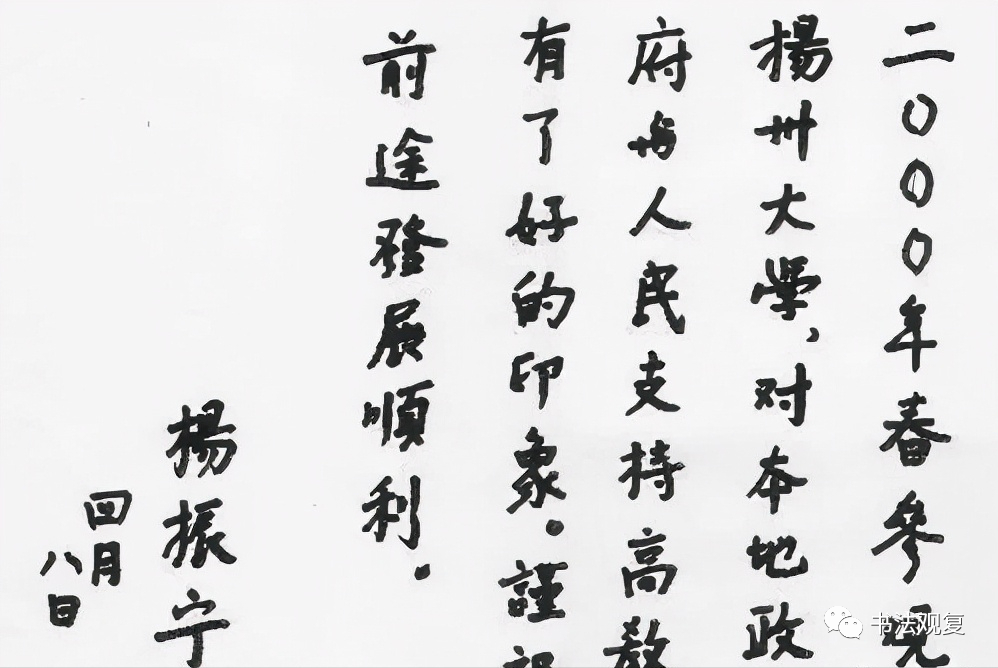 二〇〇〇年春參观
楊州大學，对本地政
府与人民支持高教
有了好的印象。謹祝
前途發展順利。
楊振宁
四月
八日
书法观复